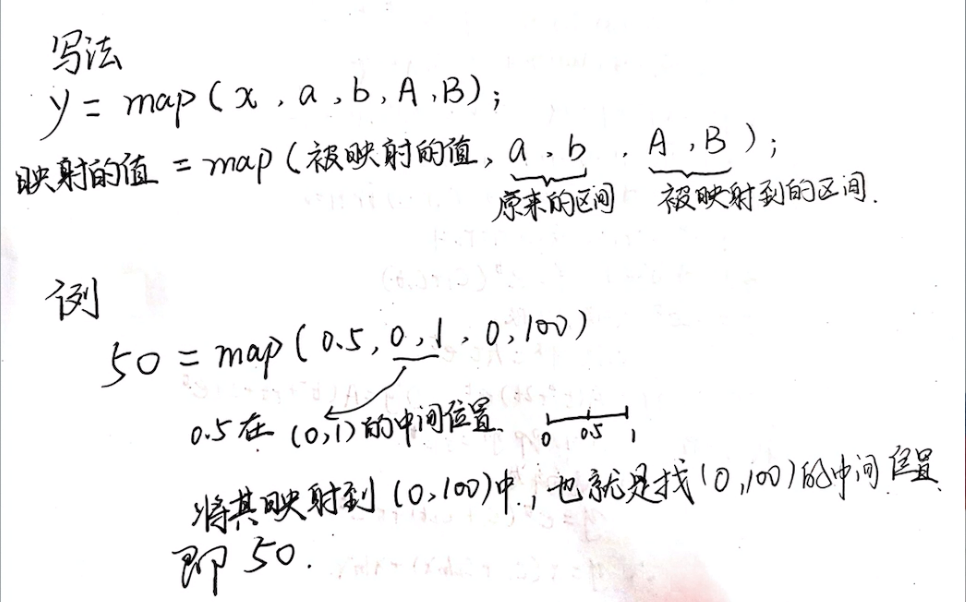 写法
y = map(x, a, b, A, B);
映射的值 = map(被映射的值, a, b, A, B);
原来的区间 被映射到的区间.
例
50 = map(0.5, 0, 1, 0, 100)
0.5在 (0,1)的中间位置.
0 0.5 1
将其映射到(0,100)中, 也就是找(0,100)的中间位置
即 50.